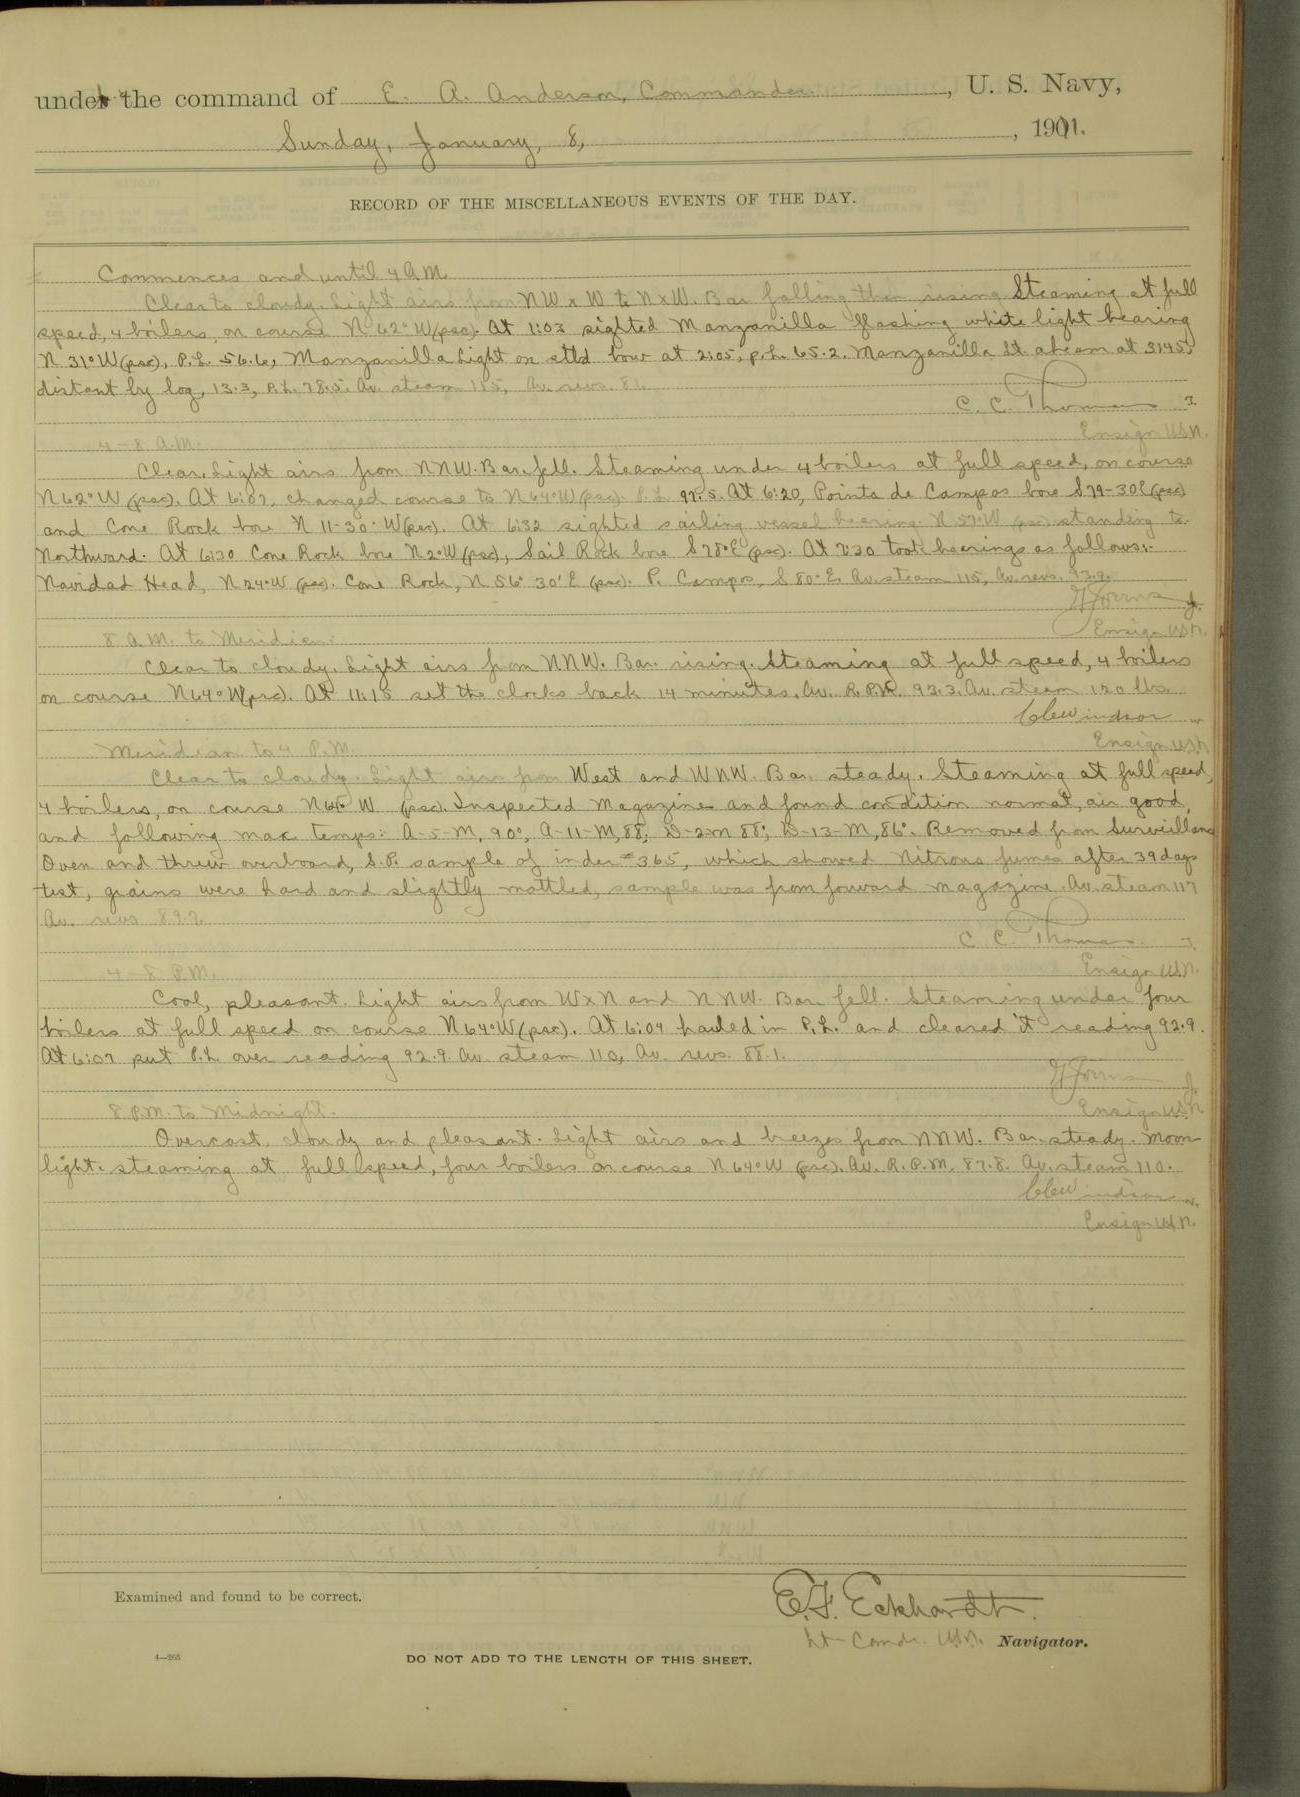 under the command of E. A. Anderson, Commander, U. S. Navy,
Sunday, January, 8, , 1911.
RECORD OF THE MISCELLANEOUS EVENTS OF THE DAY.
Commences and until 4 A.M.
Clear to cloudy. Light airs from NW x W to N x W. Bar falling then rising Steaming at full
speed, 4 boilers, on course N 62° W (psc). At 1:03 sighted Manzanilla flashing white light bearing
N 31° W (psc), P.L. 56.6, Manzanilla Light on stbd bow at 2:05, p.L. 65.2. Manzanilla Lt. abeam at
distant by log, 13.3, P.L. 78.5. Av. steam 115, Av. revs.
C. C. Thomas
Ensign U.S.N.
4-8 A.M.
Clear. Light airs from NNW. Bar. fell. Steaming under 4 boilers at full speed, on course
N 62° W (psc). At 6:07, changed course to N 64° W (psc). P.L. 97.5. At 6:20, Pointa de Campos bore S 79-30 E (psc)
and Cone Rock bore N 11-30' W (psc). At 6:32 sighted sailing vessel bearing N 57° W (psc) standing to
Northward. At 6:30 Cone Rock bore N 2° W (psc), Sail Rock bore S 78° E (psc). At 7:30 took bearings as follows:-
Navidad Head, N 24° W (psc). Cone Rock, N 56° 30' E (psc). P. Campos, S 80° E. Av. steam 115, Av. revs. 93.9.
Ensign U.S.N.
8 A.M. to Meridian.
Clear to cloudy. Light airs from NNW. Bar. rising. Steaming at full speed, 4 boilers
on course N 64° W (psc). At 11:15 set the clocks back 14 minutes. Av. R.P.M. 93.3. Av. steam 120 lbs.
Windsor
Ensign U.S.N.
Meridian to 4 P.M.
Clear to cloudy. Light airs from West and WNW. Bar. steady. Steaming at full speed,
4 boilers, on course N 64° W (psc). Inspected Magazines and found condition normal, air good,
and following max temps: A-5-M, 90°, A-11-M, 88°, D-2-M 88°, D-13-M, 86°. Removed from Surveillance
Oven and threw overboard, S.P. sample of index #365, which showed Nitrous fumes after 39 days
test, grains were hard and slightly mottled, sample was from forward magazine. Av. steam 117
Av. revs 89.2
C. C. Thomas
Ensign U.S.N.
4-8 P.M.
Cool, pleasant. Light airs from W x N and NNW. Bar. fell. Steaming under four
boilers at full speed on course N 64° W (psc). At 6:04 hauled in P.L. and cleared it reading 92.9.
At 6:07 put P.L. over reading 92.9. Av. steam 110, Av. revs. 88.1.
Ensign U.S.N.
8 P.M. to Midnight.
Overcast, cloudy and pleasant. Light airs and breezes from NNW. Bar. steady. Moon-
light. Steaming at full speed, four boilers on course N 64° W (psc). Av. R.P.M. 87.8. Av. steam 110.
Windsor
Ensign U.S.N.
Examined and found to be correct.
E. F. Eckhardt.
Lt-Comdr. U.S.N. Navigator.
4—265
DO NOT ADD TO THE LENGTH OF THIS SHEET.